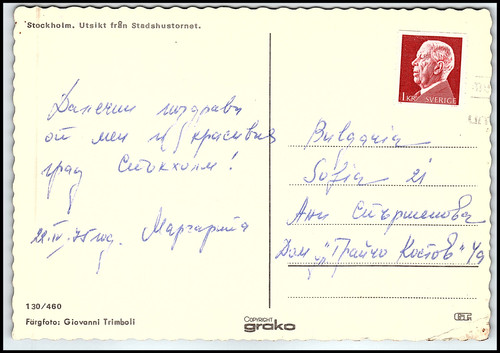 Stockholm. Utsikt från Stadshustornet.
Далечни поздрави
от мен и красивия
град Стокхолм!
22.IV.75 год. Маргарита
1 KR SVERIGE
Bulgaria
Sofia 21
Ани Стършенова
Дом "Трайчо Костов"
130/460
Färgfoto: Giovanni Trimboli
COPYRIGHT
grako